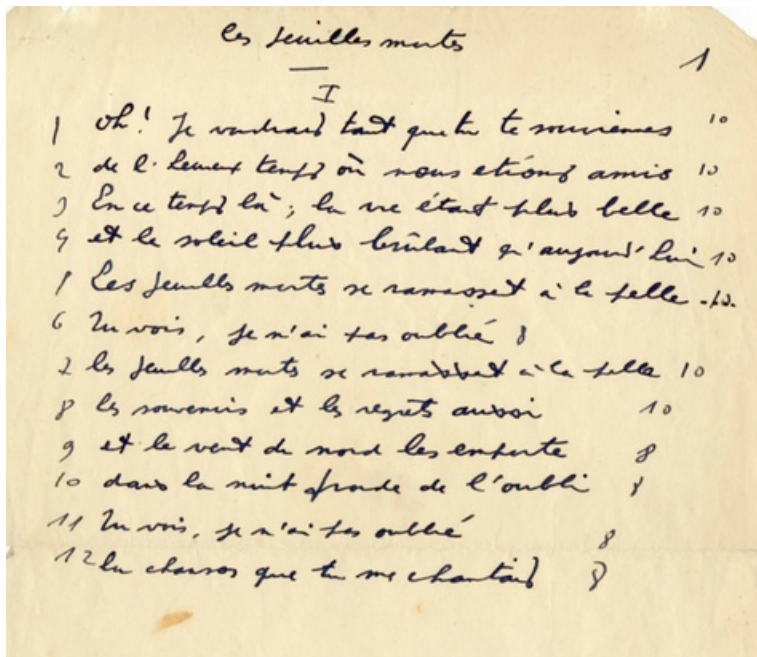 les feuilles mortes
1
I
1 oh! Je voudrais tant que tu te souviennes 10
2 de l'heureux temps où nous etions amis 10
3 En ce temps là ; la vie était plus belle 10
4 et le soleil plus brûlant qu'aujourd'hui 10
5 Les feuilles mortes se ramassent à la pelle .10.
6 Tu vois, je n'ai pas oublié 8
7 les feuilles mortes se ramassent à la pelle 10
8 les souvenirs et les regrets aussi 10
9 et le vent du nord les emporte 8
10 dans la nuit froide de l'oubli 8
11 Tu vois, je n'ai pas oublié 8
12 la chanson que tu me chantais 8